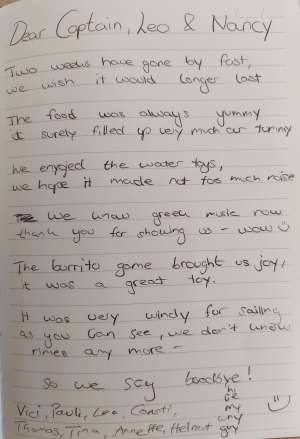 Dear Captain, Leo & Nancy
Two weeks have gone by fast,
we wish it would longer last
The food was always yummy
it surely filled up very much our tummy
We enjoyed the water toys,
we hope it made not too much noise
We know greek music now
thank you for showing us - wow
The burrito game brought us joy,
it was a great toy.
It was very windy for sailing
as you can see, we don't know
rimes any more -
So we say goodbye!
Vici, Pauli, Lea,
Thomas, Tina, Annette, Helmut